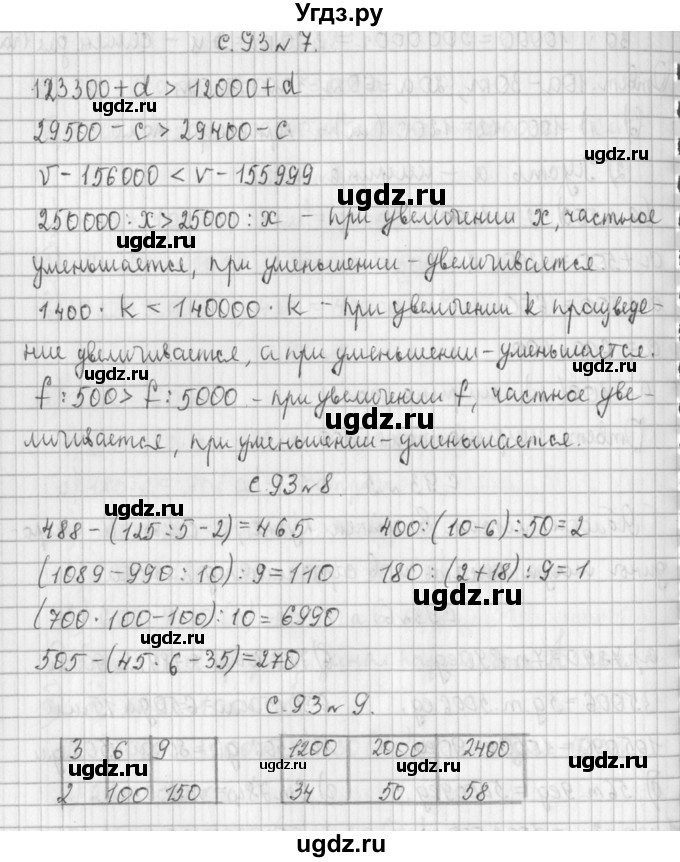 Угдз.ру
с.93 №7.
123300+d > 12000+d
ugdz.ru
29500-c > 29400-c
ugdz.ru
v-156000 < v-155999
ugdz.ru
250000:x > 25000:x - при увеличении x, частное
ugdz.ru
уменьшается, при уменьшении - увеличивается.
1400·k < 140000·k - при увеличении k произведе-
ugdz.ru
ние увеличивается, а при уменьшении - уменьшается.
ugdz.ru
f:500 > f:5000 - при увеличении f, частное уве-
ugdz.ru
личивается, при уменьшении - уменьшается.
ugdz.ru
с.93 №8.
488-(125:5-2)=465 400:(10-6):50=2
ugdz.ru
(1089-990:10):9=110 180:(2+18):9=1
ugdz.ru
(700·100-100):10=6990
ugdz.ru
505-(45·6-35)=270
с.93 №9.
ugdz.ru
3 6 9 1200 2000 2400
ugdz.ru ugdz.ru ugdz.ru ugdz.ru
2 100 150 34 50 58
ugdz.ru